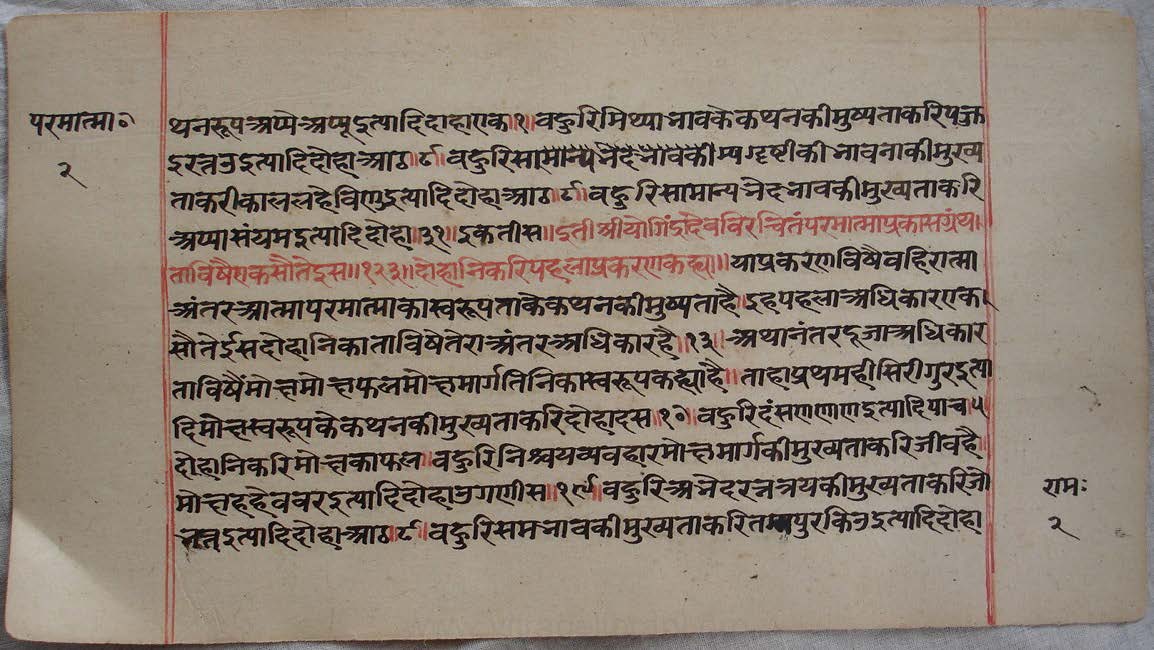 परमात्मा॰
२
थनरूपअप्पेअप्पूइत्यादिदाहाएक।१।वहुरिमिथ्याभावकैकथनकीमुष्यताकरिपज्ज
इरत्तउइत्यादिदोहाआठ।८।वहुरिसामान्यभेदभावकीम्यगदृष्टीकीभावनाकीमुख्य
ताकरीकाललहैविणुइत्यादिदोहाआठ।८।वहुरिसामान्यभेदभावकीमुख्यताकरि
अप्पासंयमइत्यादिदोहा॥३१॥इकतीस॥इतीश्रीयोगिंद्रदेवविरचितंपरमात्माप्रकासग्रंथ।
ताविषैएकसौतेइस॥१२३॥दोहानिकरिपहलाप्रकरणकह्या॥याप्रकरणविषैवहिरात्मा
अंतरआत्मापरमात्माकास्वरूपताकेकथनकीमुष्यताहै।इहपहलाअधिकारएक
सौतेईसदोहानिकाताविषैतेराअंतरअधिकारहै॥१३॥अथानंतरदूजाअधिकार
ताविषैंमोक्षमोक्षफलमोक्षमार्गतिनिकास्वरूपकह्याहै॥ताहाप्रथमहीसिरीगुरइत्या
दिमोक्षस्वरूपकैकथनकीमुख्यताकरिदोहादस॥१०॥वहुरिदंसणणाणइत्यादिपाच५
दोहानिकरिमोक्षकाफल॥वहुरिनिश्चयव्यवहारमोक्षमार्गकीमुख्यताकरिजीवहै॥
मोक्षहहेववरइत्यादिदोहाउगणीस॥१९॥वहुरिअभेदरत्नत्रयकीमुख्यताकरिजो
भत्तइत्यादिदोहाआठ।८।वहुरिसमभावकीमुख्यताकरि पुरकिउइत्यादिदोहा
रामः
२